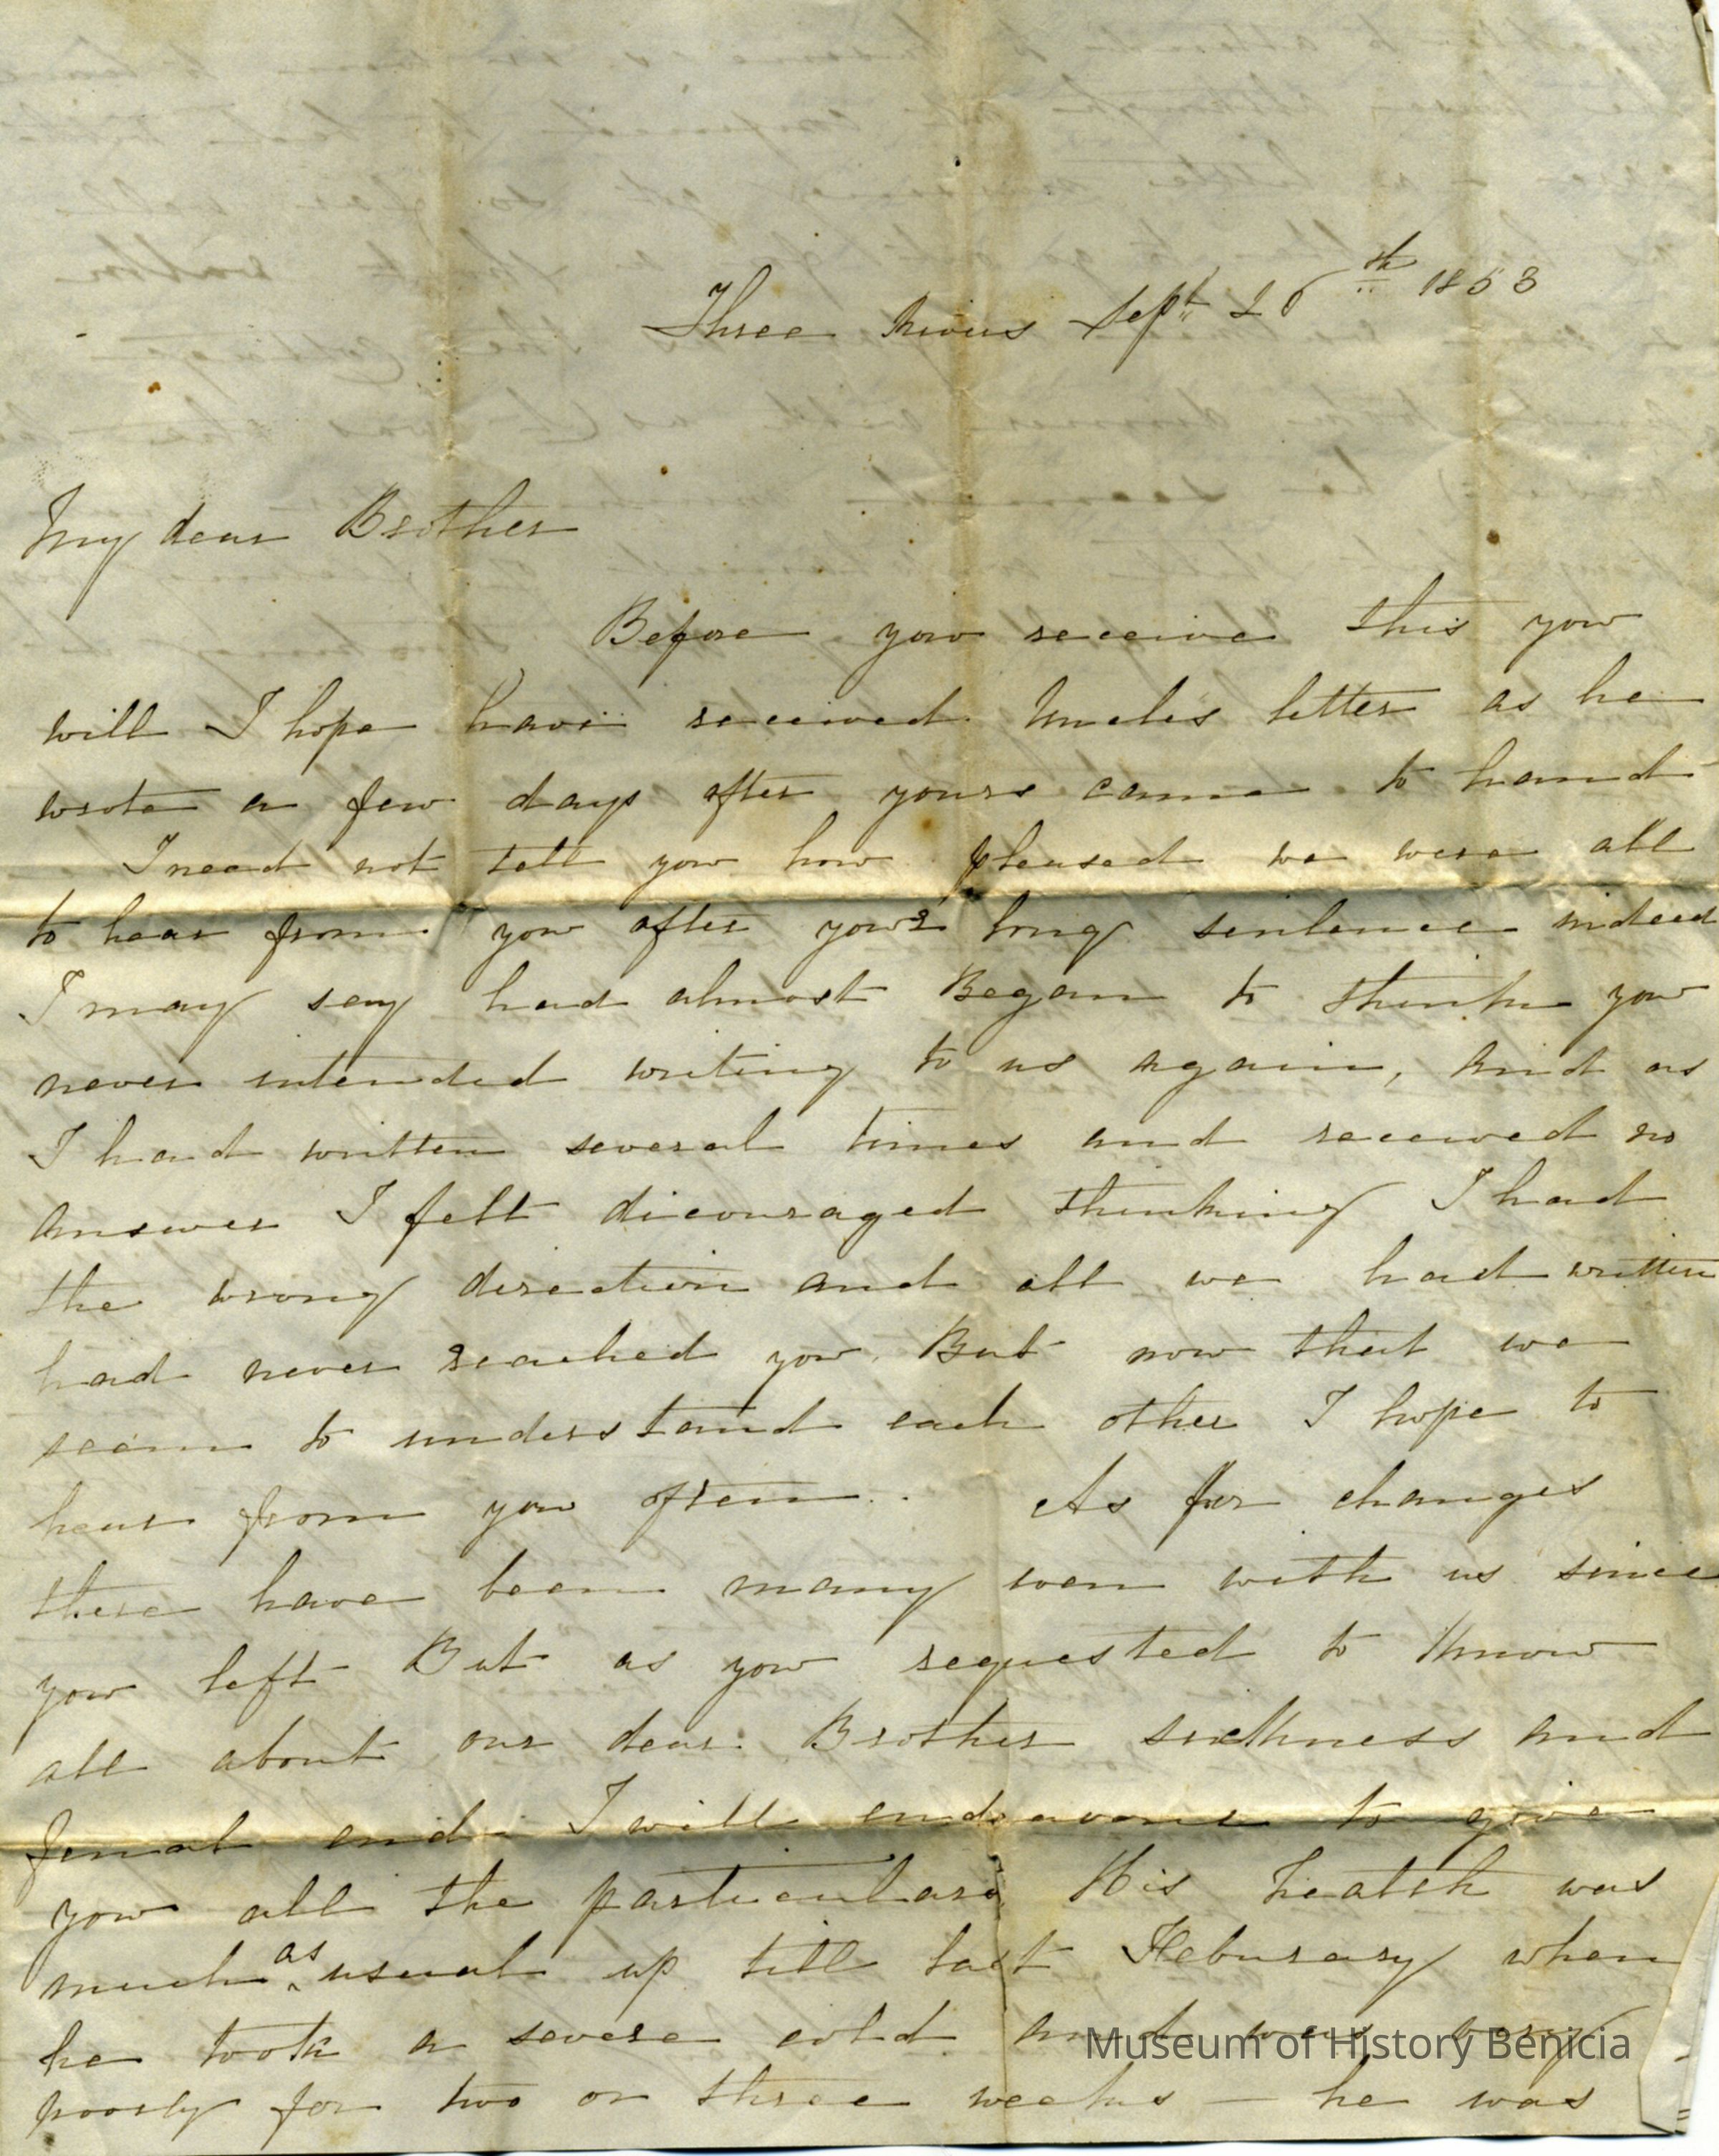 Three Rivers Sept 26th 1853
My dear Brother
Before you receive this you
will I hope have received Uncles letter as he
wrote a few days after yours came to hand
I need not tell you how pleased we were all
to hear from you after your long sentence indeed
I may say had almost Began to think you
never intended writing to us again, and as
I had written several times and received no
answer I felt dicouraged thinking I had
the wrong direction and all we had written
had never reached you. But now that we
seem to understand each other I hope to
hear from you often. As for changes
there have been many even with us since
you left But as you requested to know
all about our dear Brother sickness and
final end I will endeavour to give
you all the particulars His health was
much as usual up till last Feburary when
he took a severe cold and was very
poorly for two or three weeks — he was
Museum of History Benicia